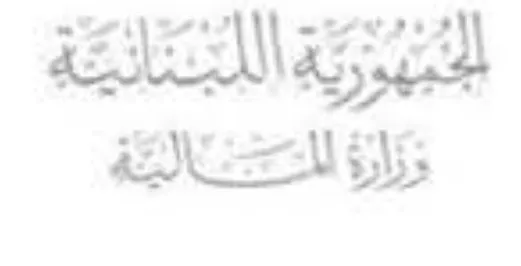 الجمهورية اللبنانية
وزارة المالية